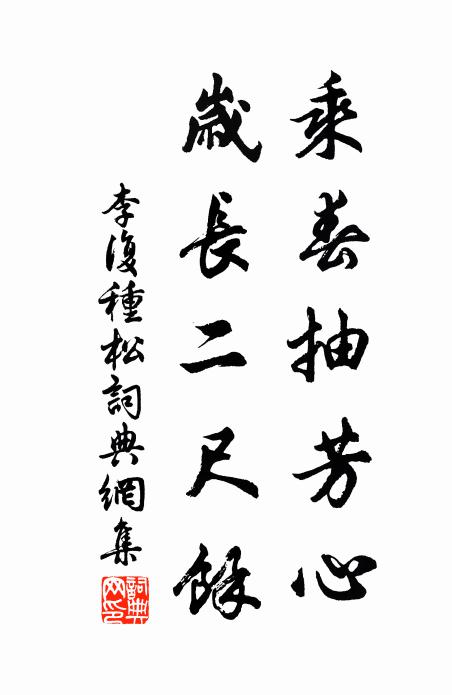 乘春抽芳心
歲長二尺餘
李復種松詞典網集
詞典網印